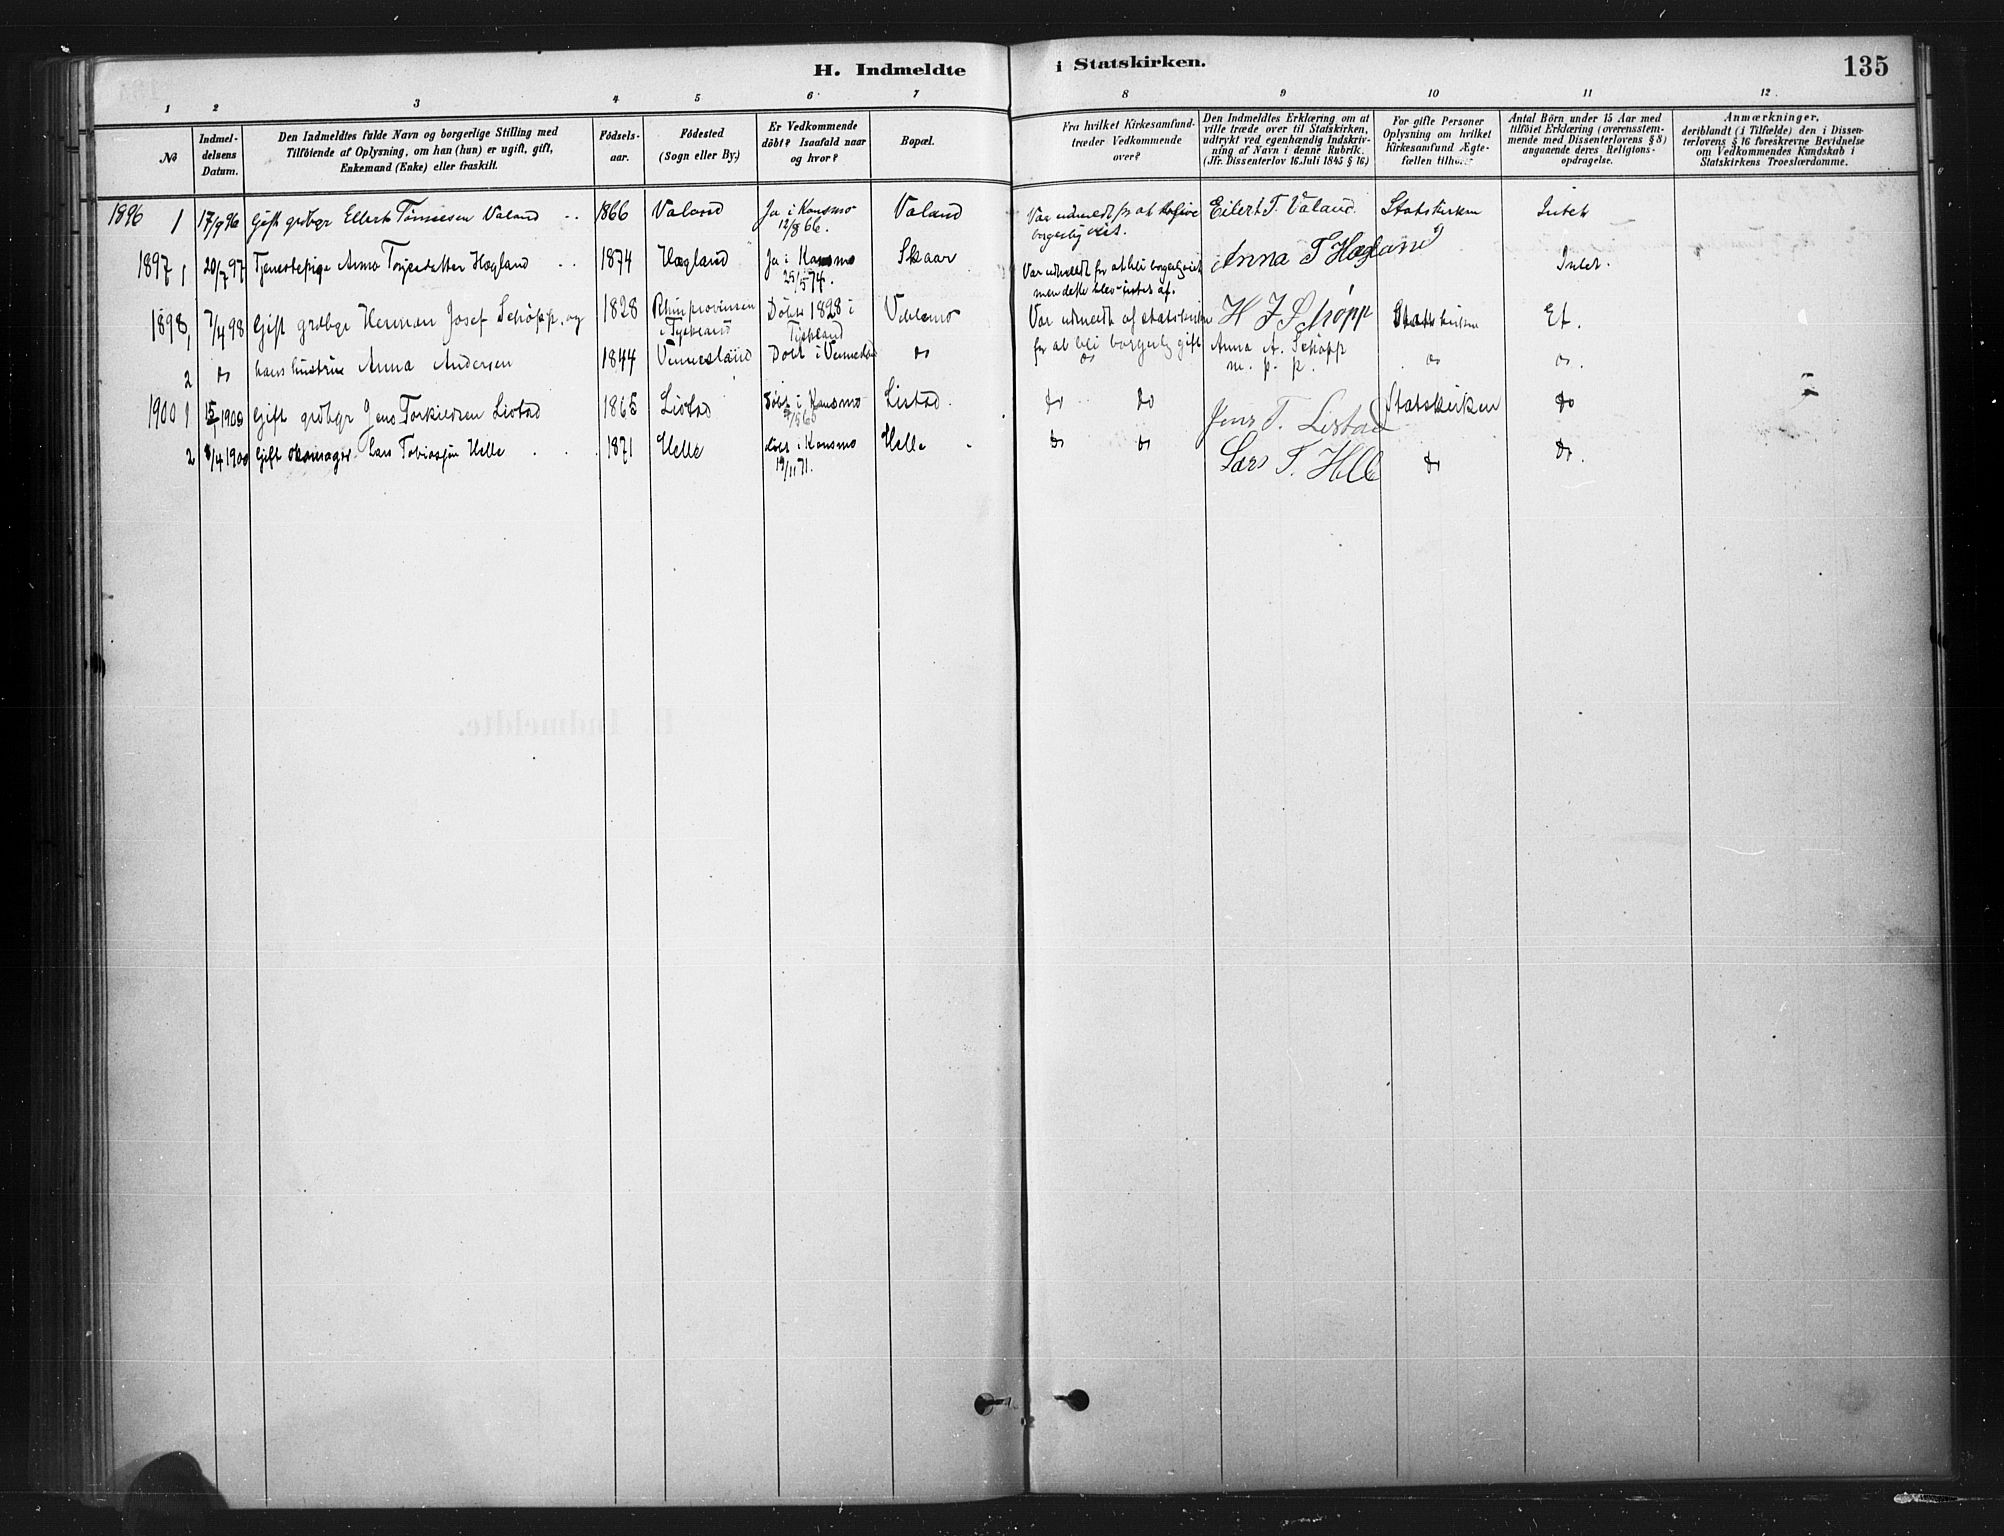 H. Indmeldte i Statskirken. 135
1 2 3 4 5 6 7 8 9 10 11 12
No
Indmeldelsens Datum.
Den Indmeldtes fulde Navn og borgerlige Stilling med
Tilföiende af Oplysning, om han (hun) er ugift, gift,
Enkemand (Enke) eller fraskilt.
Födselsaar.
Födested
(Sogn eller By.)
Er Vedkommende
döbt? Isaafald naar
og hvor?
Bopæl.
Fra hvilket Kirkesamfund
træder Vedkommende
over?
Den Indmeldtes Erklæring om at
ville træde over til Statskirken,
udtrykt ved egenhændig Indskrivning
af Navn i denne Rubrik.
(Jfr. Dissenterlov 16. Juli 1845 § 16)
For gifte Personer
Oplysning om hvilket
Kirkesamfund Ægtefællen
tilhører
Antal Börn under 15 Aar med
tilföiet Erklæring (overensstemmende
med Dissenterlovens § 8)
angaaende deres Religionsopdragelse.
Anmærkninger,
deriblandt (i Tilfælde) den i Dissenterlovens
§ 16 foreskrevne Bevidnelse
om Vedkommendes Kundskab i
Statskirkens Troeslærdomme.
1896 1 17/9 96 Gift grdbgr Eilert Tønnesen Valand 1866 Valand Ja i Konsmo 12/8 66. Valand Var udmeldt for at borgerlig viet. Eilert T. Valand Statskirken Intet
1897 1 20/7 97 Tjenestepige Anna Torjesdatter Hægland 1874 Hægland Ja i Konsmo 25/5 74. Skaar Var udmeldt for at bli borgerlig viet men dette blev intet af. Anna T Hægland Intet.
1898 1 7/4 98 Gift grdbgr Herman Josef Schöpp, og 1828 Rhinprovinsen Tyskland Döbt 1828 i Tyskland Var udmeldt af statskirken for at bli borgerlig gift H J Schöpp Statskirken Et.
2 do hans hustru Anna Andersen 1844 Vennesland Döbt i Vennesland do do Anna A. Schöpp m. p. p. do do.
1900 1 1900 Gift grdbgr Jens Torkildsen Listad 1865 Listad Döbt i Konsmo Listad. do do Jens T. Listad Statskirken do
2 8/4 1900 Gift skomager Lars Tobiassøn Helle 1871 Helle döbt i Konsmo 19/11 71. Helle do do Lars T. Helle do do.